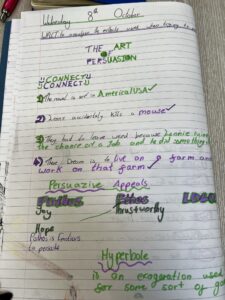 Wednesday 8th October
WALT: to analyse
THE ART
OF
PERSUASION
CONNECT
CONNECT
1) The novel is set in America/USA ✓
2) Lennie accidentally kills a mouse ✓
3) They had to leave weed because Lennie
the chance of a Job and he did something
4) There Dream is to live on a farm and
work on that farm ✓
Persuasive Appeals
Pathos Ethos LOGO
Joy Trustworthy
Hope
Pathos is Emotions
to persuade
Hyperbole
is an exageration used
for some sort of